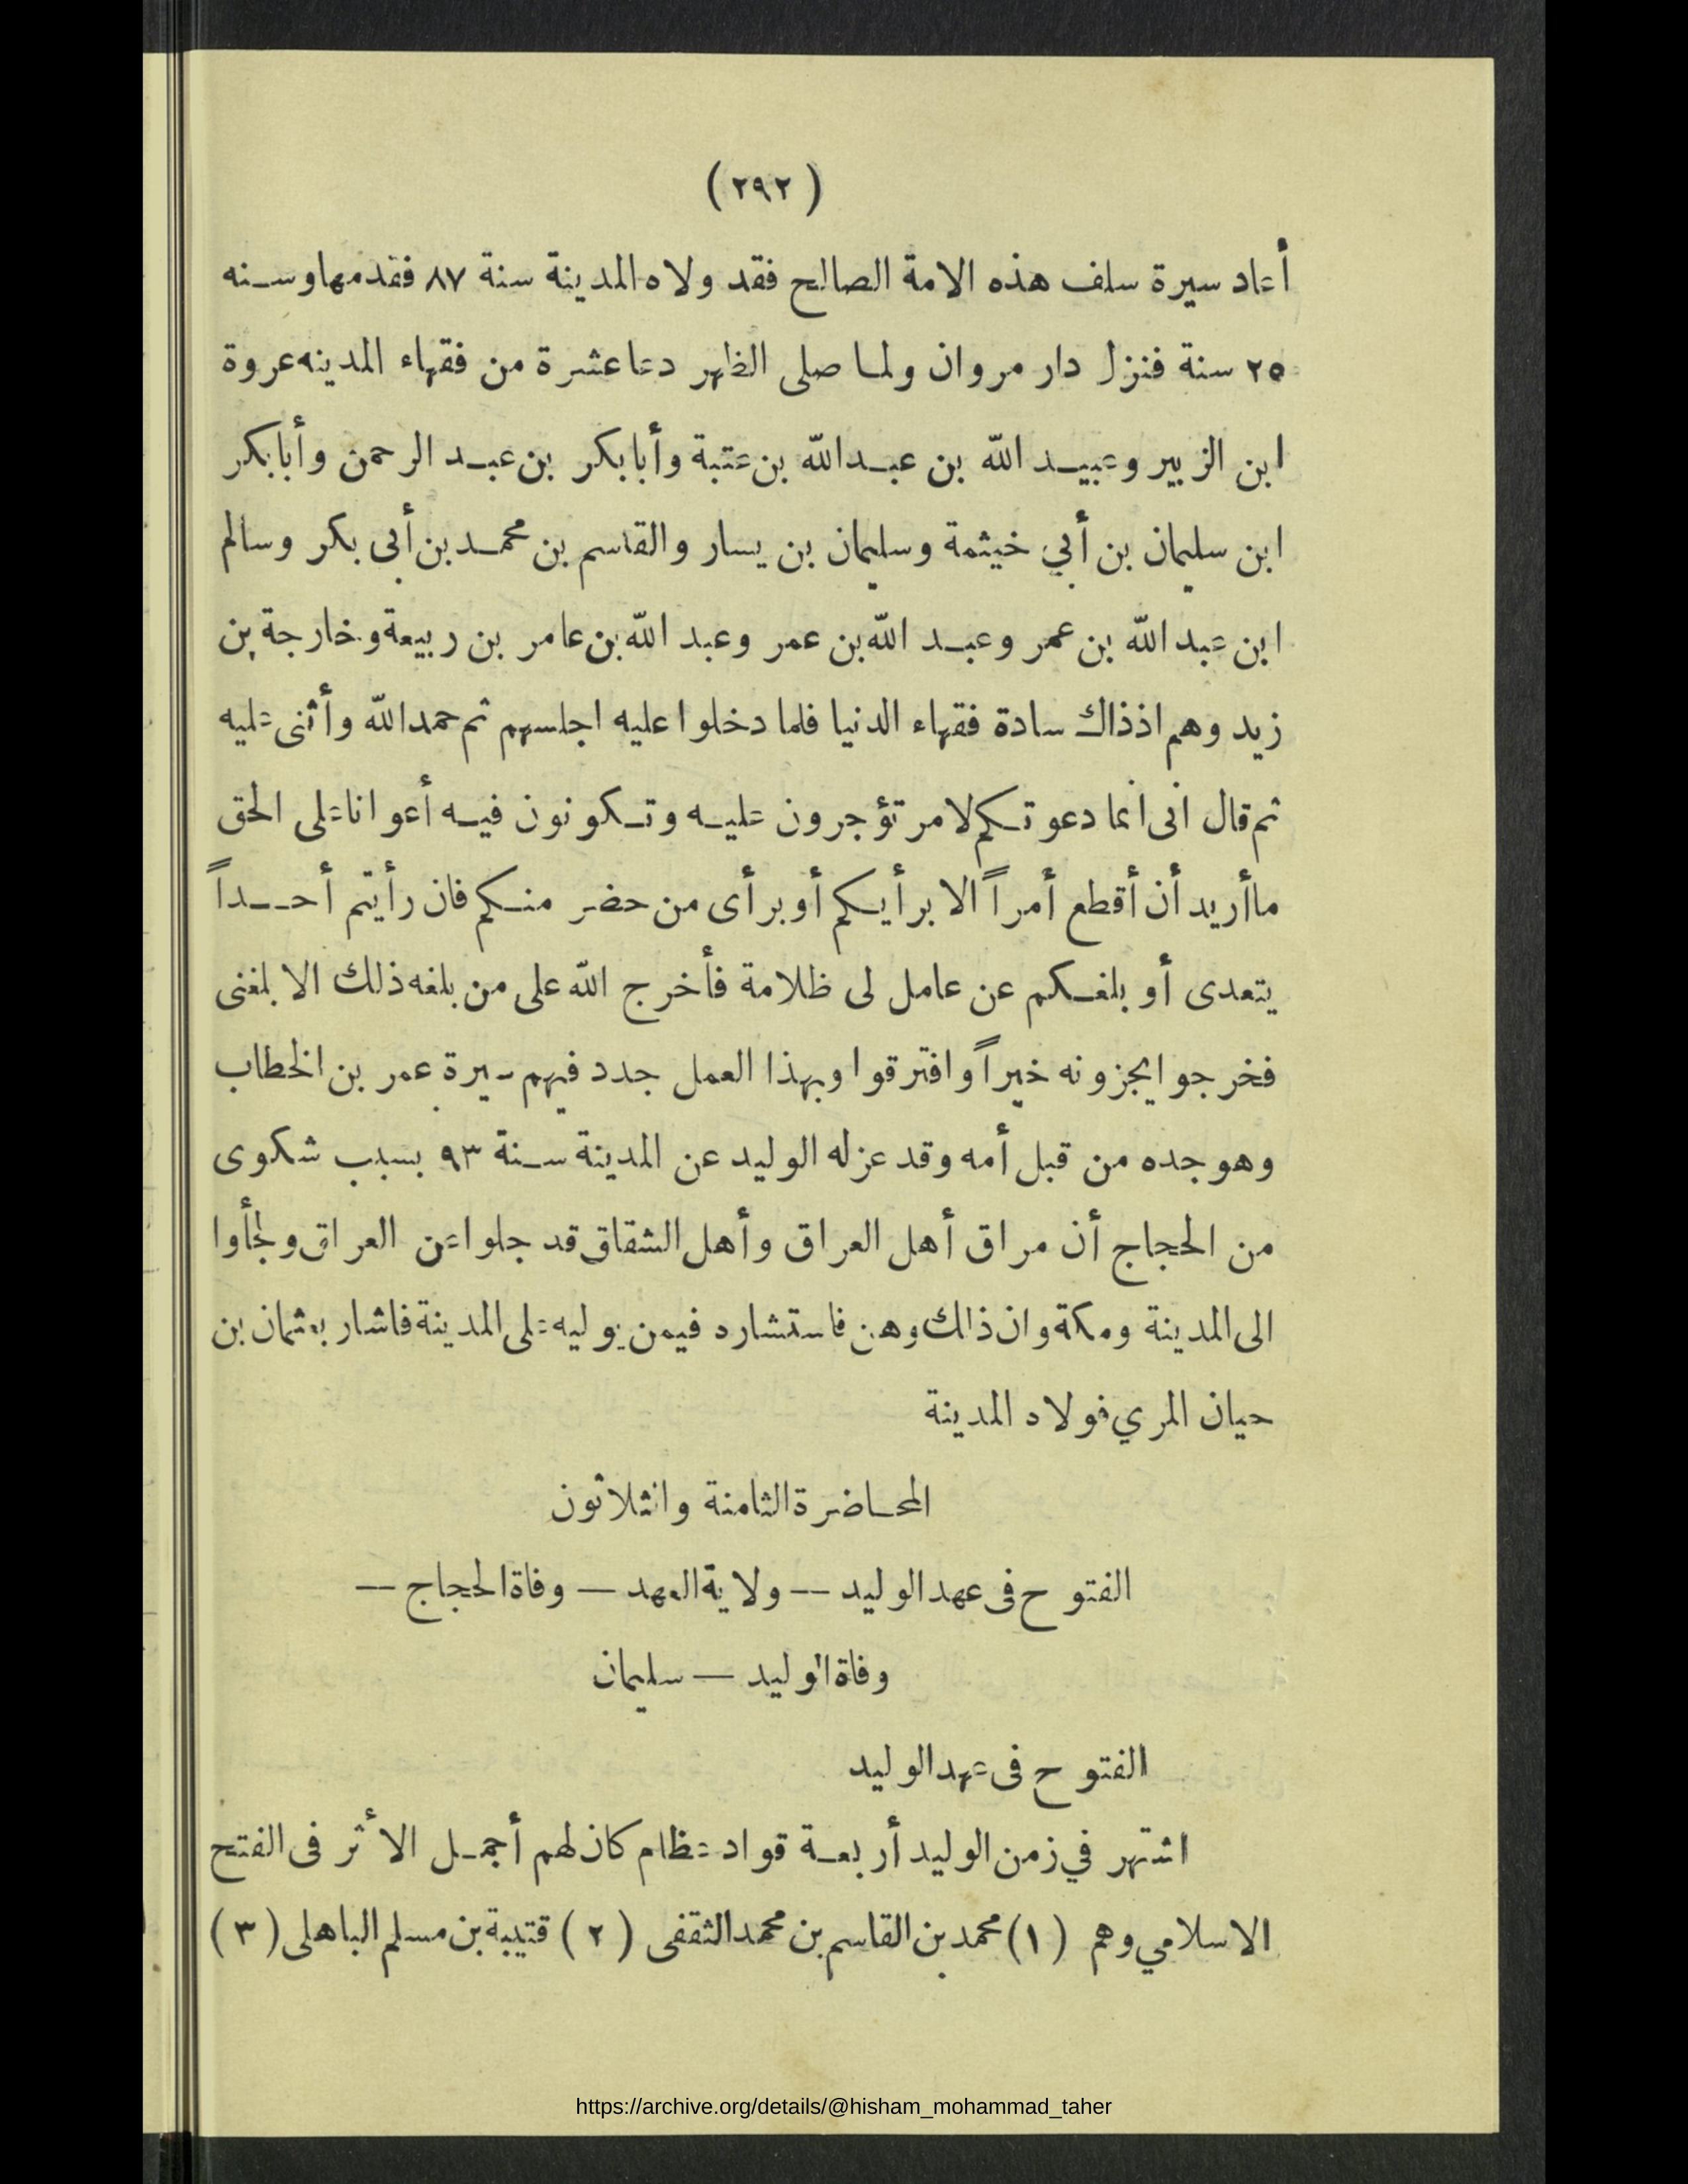 ( ٢٩٢ )
أعاد سيرة سلف هذه الامة الصالح فقد ولاه المدينة سنة ٨٧ فقدمها وسنه
٢٥ سنة فنزل دار مروان ولما صلى الظهر دعا عشرة من فقهاء المدينه عروة
ابن الزبير وعبيد الله بن عبد الله بن عتبة وأبا بكر بن عبد الرحمن وأبا بكر
ابن سليمان بن أبي خيثمة وسليمان بن يسار والقاسم بن محمد بن أبى بكر وسالم
ابن عبد الله بن عمر وعبد الله بن عمر وعبد الله بن عامر بن ربيعة وخارجة بن
زيد وهم اذ ذاك سادة فقهاء الدنيا فلما دخلوا عليه اجلسهم ثم حمد الله وأثنى عليه
ثم قال انى انما دعوتكم لامر تؤجرون عليه وتكونون فيه أعوانا على الحق
ما أريد أن أقطع أمراً الا برأيكم أو برأى من حضر منكم فان رأيتم أحداً
يتعدى أو بلغكم عن عامل لى ظلامة فأخرج الله على من بلغه ذلك الا بلغنى
فخرجوا يجزونه خيراً وافترقوا وبهذا العمل جدد فيهم سيرة عمر بن الخطاب
وهو جده من قبل أمه وقد عزله الوليد عن المدينة سنة ٩٣ بسبب شكوى
من الحجاج أن مراق أهل العراق وأهل الشقاق قد جلوا عن العراق ولجأوا
الى المدينة ومكة وان ذلك وهن فاستشاره فيمن يوليه على المدينة فاشار بعثمان بن
حيان المري فولاه المدينة
المحاضرة الثامنة والثلاثون
الفتوح فى عهد الوليد — ولاية العهد — وفاة الحجاج —
وفاة الوليد — سليمان
الفتوح فى عهد الوليد
اشتهر في زمن الوليد أربعة قواد عظام كان لهم أجمل الأثر فى الفتح
الاسلامي وهم (١) محمد بن القاسم بن محمد الثقفى (٢) قتيبة بن مسلم الباهلى (٣)
https://archive.org/details/@hisham_mohammad_taher